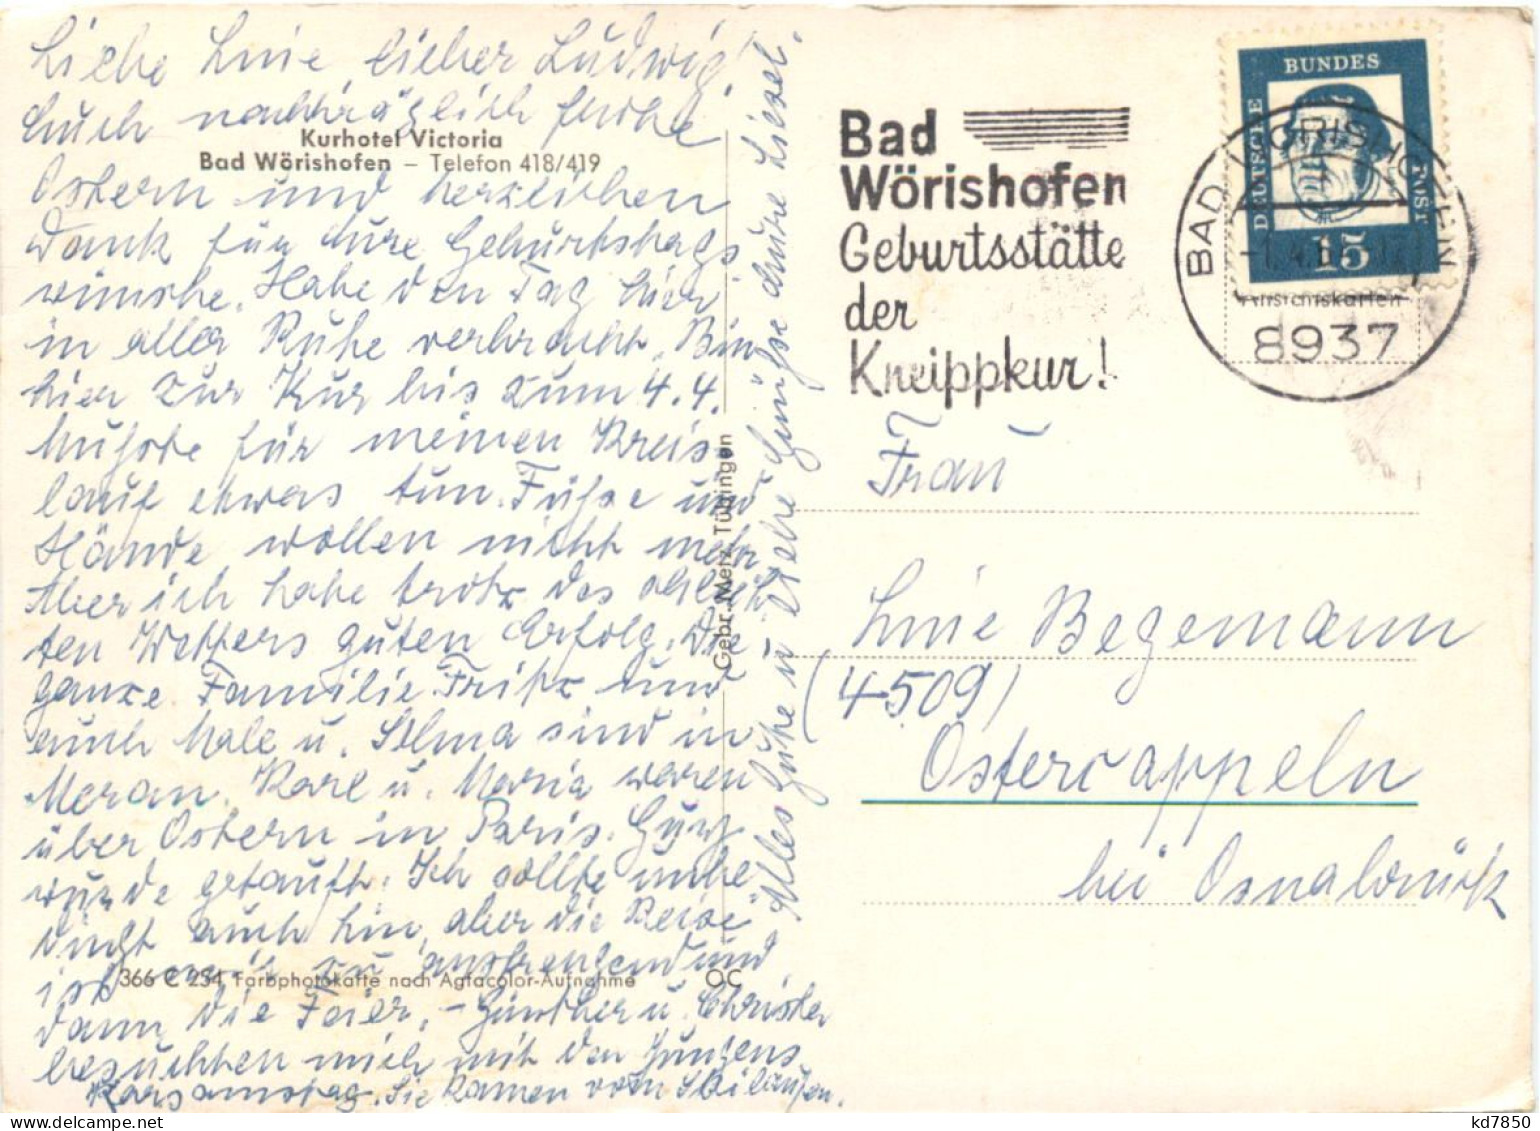 Liebe Linie, lieber Ludwig!
Euch nachträglich frohe
Kurhotel Victoria
Bad Wörishofen – Telefon 418/419
Ostern und herzlichen
Dank für Eure Geburtstags
wünsche. Habe den Tag hier
in aller Ruhe verbracht. Bin
hier zur Kur bis zum 4.4.
Mußte für meinen Kreis-
lauf etwas tun. Füße und
Hände wollen nicht mehr
Aber ich habe trotz des schlech
ten Wetters guten Erfolg. Die
ganze Familie Fritz und
auch Male u. Selma sind in
Meran. Karl u. Maria waren
über Ostern in Paris.
wurde getauft. Ich sollte unbe
dingt auch hin, aber die Reise
ist mir zu anstrengend und
366 C 254 Farbphotokarte nach Agfacolor-Aufnahme OC
dann die Feier. – Günther u. Christel
besuchten mich mit den Jungens
Karsamstag. Sie kamen vom Skilaufen.
Alles Gute u. liebe Grüße Eure Liesel.
Gebr. Metz, Tübingen
Bad
Wörishofen
Geburtsstätte
der
Kneippkur!
DEUTSCHE BUNDESPOST
15
BAD WÖRISHOFEN
8937
Ansichtskarten
Frau
Linie Begemann
(4509)
Ostercappeln
bei Osnabrück
kd7850